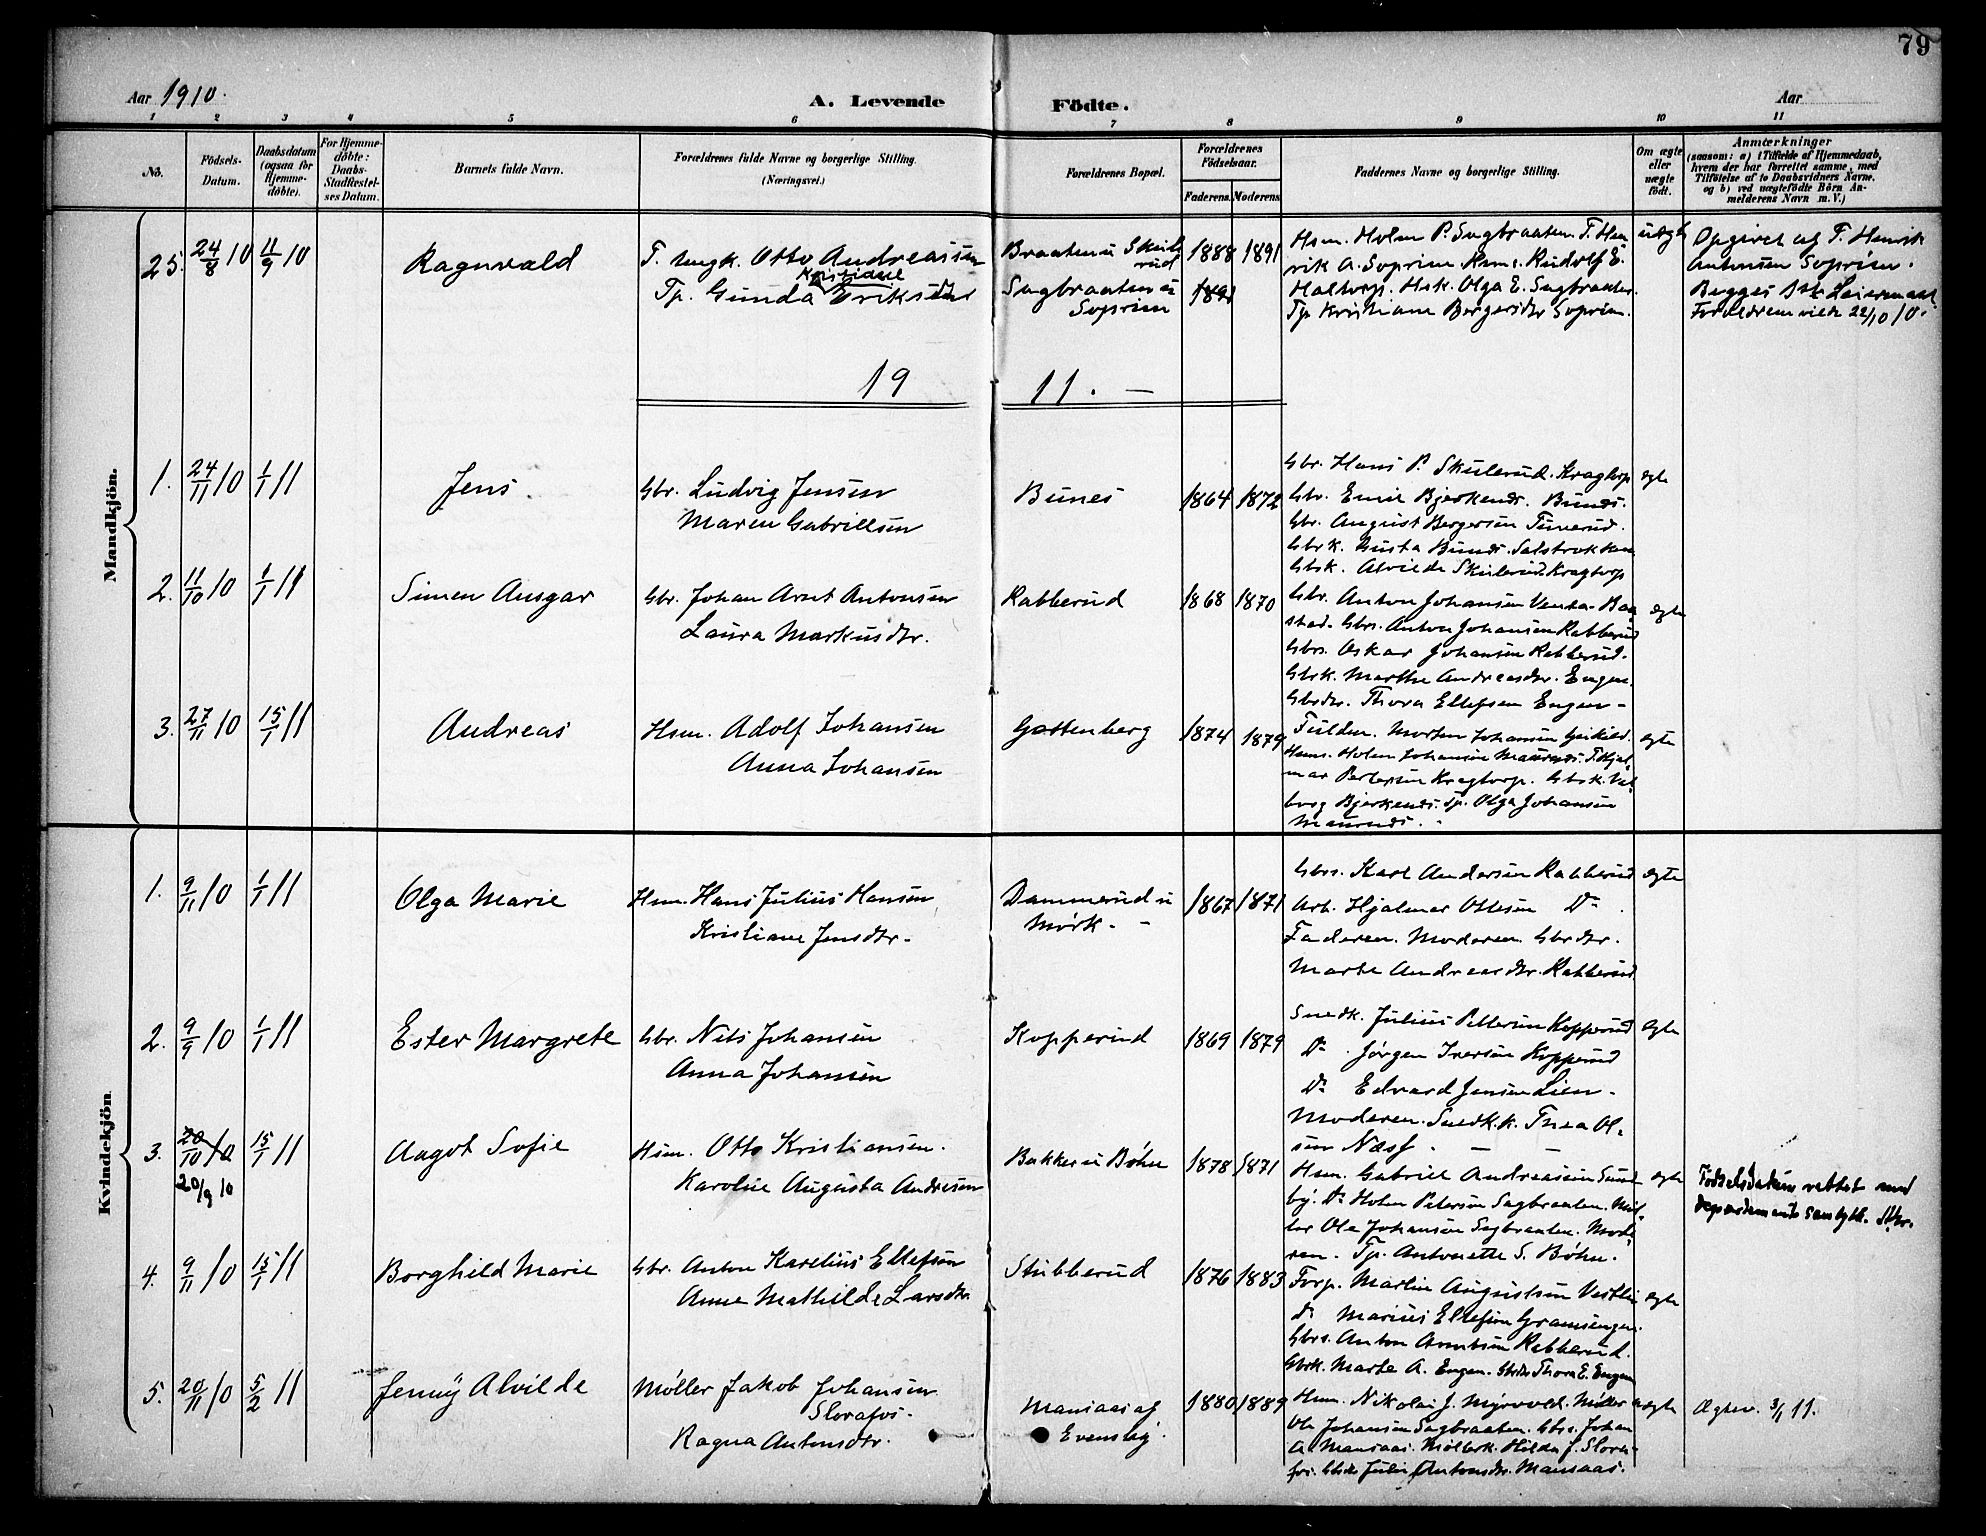 79
Aar 1910. A. Levende Födte. Aar
1 2 3 4 5 6 7 8 9 10 11
No.
Födsels-Datum.
Daabsdatum (ogsaa for Hjemme-döbte).
For Hjemme-döbte: Daabs-Stadfæstel-ses Datum.
Barnets fulde Navn.
Forældrenes fulde Navne og borgerlige Stilling.
(Næringsvei.)
Forældrenes Bopæl.
Forældrenes Födselsaar.
Faderens. Moderens.
Faddernes Navne og borgerlige Stilling.
Om ægte eller uægte födt.
Anmærkninger
(saasom: a) i Tilfælde af Hjemmedaab,
hvem der har forrettet samme, med
Tilföielse af to Daabsvidners Navne.
og b) ved uægtefödte Börn An-
melderens Navn m. V.)
Mandkjön.
25. 24/8 10 11/9 10 Ragnvald
T. ungk. Otto Andreassen
Kristiane
Tp. Gunda Eriksdtr
Braaten u Skule
rud
Sagbraaten u
Soprim
1888 1891
1891
Hsm. Holm P. Sagbraaten. T. Hen
rik A. Soprim Rudolf E.
Haltorp. Hsk. Olga E. Sagbraaten.
Tp. Kristiane Borgersdtr Soprim.
uægte
Opgivet af T. Henrik
Antonsen Soprim.
Begges 1ste Leiermaal
Forældrene viede 22/10 10.
19 11. —
1. 24/11 10 1/1 11 Jens
Gbr. Ludvig Jensen
Maren Gabrielsen
Bunes
1864 1872
Gbr. Hans P. Skulerud. Kragtorp
Gbr. Emil Bjerkenes. Bunes.
Gbr. August Bergersen Tunerud.
Gbrk. Gusta Bunes. Salstrokken
Gbrk. Alvilde Skulerud. Kragtorp
ægte
2. 11/10 10 1/1 11 Simen Ansgar
Gbr. Johan Arnt Antonsen
Laura Markusdtr.
Rabberud
1868 1870
Gbr. Anton Johansen Baa
stad. Gbrs. Anton Johansen Rabberud
Gbrs. Oskar Johansen Rabberud.
Gbrk. Marthe Andreasdtr. Engen.
Gbrdtr. Thora Ellefsen Engen —
ægte
3. 27/11 10 15/1 11 Andreas
Hsm. Adolf Johansen
Anna Johansen
Gottenberg
1874 1879
Fulden. Morten Johansen
Hsm. Holm Johansen Maurnes. T. Hjal-
mar Pettersen Kragtorp. Gbrk. Val-
borg Bjerkenes. Tp. Olga Johansen
Maurnes.
ægte
Kvindekjön.
1. 9/11 10 1/1 11 Olga Marie
Hsm. Hans Julius Hansen
Kristiane Jensdtr.
Dammerud u
Mörk. —
1867 1871
Gbrs. Karl Andersen Rabberud
Arb. Hjalmar Ottesen Do
Faderen. Moderen. Gbrdtr.
Marte Andreasdtr. Rabberud
ægte
2. 9/9 10 1/1 11 Ester Margrete
Gbr. Nils Johansen
Anna Johansen
Kopperud
1869 1879
Snedk. Julius Pettersen Kopperud
Do Jörgen Iversen Kopperud
Do Edvard Jensen Lien.
Moderen. Snedk.k. Thea Ol-
sen Næss. — —
ægte
3. 20/10 10 15/1 11 Aagot Sofie
20/9 10
Hsm. Otto Kristiansen.
Karoline Augusta Andresen
Bakken u Böhn
1878 1871
Hsm. Gabriel Andreassen Sund
by. Do Holm Petersen Sagbraaten. Möl-
ler Ole Johansen Sagbraaten. Mode
ren. Tp. Antonette S. Böhn.
ægte
Födselsdatum rettet med
departements samtykke.
4. 9/11 10 15/1 11 Borghild Marie
Gbr. Anton Karelius Ellefsen
Anne Mathilde Larsdtr
Stubberud
1876 1883
Forp. Martin Augustsen Vestli
do Marius Ellefsen Gramsengen.
Gbrs. Anton Arntsen Rabberud.
Gbrk. Marte A. Engen. Gbrdtr Thora E. Engen
ægte
5. 20/11 10 5/2 11 Jenny Alvilde
Möller Jakob Johansen
Slorafos.
Ragna Antonsdtr.
Mansaas af
Evensby.
1880 1889
Hsm. Nikolai J. Myrvold. Möller
Ole Johansen Sagbraaten. Gbrs. Johan
A. Mansaas. Möllerk. Hilda J. Slora-
fos. Gbrdtr Julie Antonsdtr. Mansaas.
uægte
Ægtev. 3/1 11.